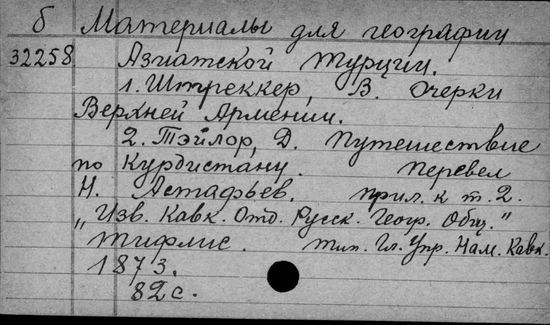 б Материалы для географии
32258 Азиатской Турции.
1. Штреккер, В. Очерки
Верхней Армении.
2. Тэйлор, Д. Путешествие
по Курдистану. Перевел
Н. Астафьев. Прил. к т. 2.
„Изв. Кавк. Отд. Русск. Геогр. Общ."
Тифлис. Тип. Гл. Упр. Нам. Кавк.
1873.
82 с.